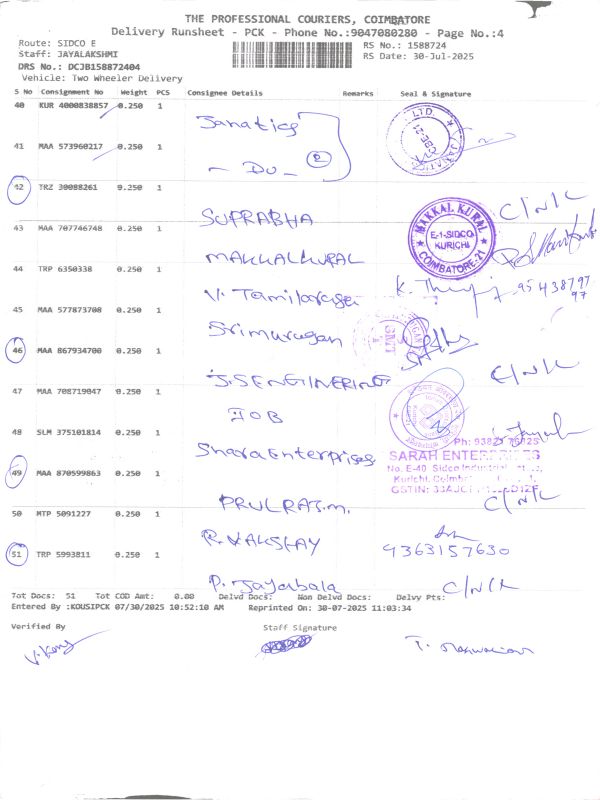 THE PROFESSIONAL COURIERS, COIMBATORE
Delivery Runsheet - PCK - Phone No.:9047080280 - Page No.:4
Route: SIDCO E
RS No.: 1588724
Staff: JAYALAKSHMI
RS Date: 30-Jul-2025
DRS No.: DCJB158872404
Vehicle: Two Wheeler Delivery
S No Consignment No Weight PCS Consignee Details Remarks Seal & Signature
40 KUR 4000838857 0.250 1
Janatics
LTD.
CBE-21
41 MAA 573960217 0.250 1
- Do -
2
42 TRZ 30088261 9.250 1
SUPRABHA
C/N/L
43 MAA 707746748 0.250 1
MAKKALKURAL
MAKKAL KURAL
E-1-SIDCO
KURICHI
COIMBATORE-21
44 TRP 6350338 0.250 1
V. Tamilarasa
95438797
97
45 MAA 577873708 0.250 1
Srimurugan
46 MAA 867934700 0.250 1
J.S ENGINERING
C/N/L
47 MAA 708719047 0.250 1
IOB
48 SLM 375101814 0.250 1
Shara Enterprises
SARAH ENTERPRISES
No. E-40 Sidco Industrial
Kurichi, Coimb
GSTIN:
49 MAA 870599863 0.250 1
PRULRAJ.m.
C/N/L
50 MTP 5091227 0.250 1
R. VAKSHAY
9363157630
51 TRP 5993811 0.250 1
P. Jayabala
C/N/L
Tot Docs: 51 Tot COD Amt: 0.00 Delvd Docs: Non Delvd Docs: Delvy Pts:
Entered By :KOUSIPCK 07/30/2025 10:52:10 AM Reprinted On: 30-07-2025 11:03:34
Verified By Staff Signature